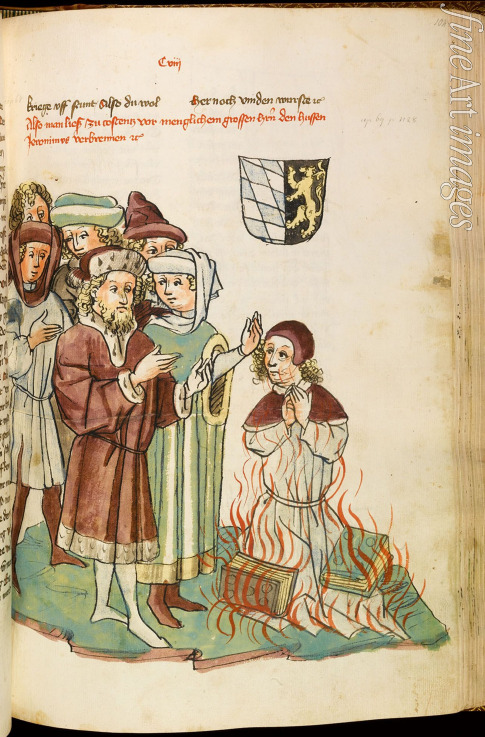 108
Cviij
kriege uff stunt Also du wol her noch vinden wurste ꝛc
Also man ließ zu costentz vor menglichem grossen hrn den hussen
Jeronimus verbrennen ꝛc
fine Art images